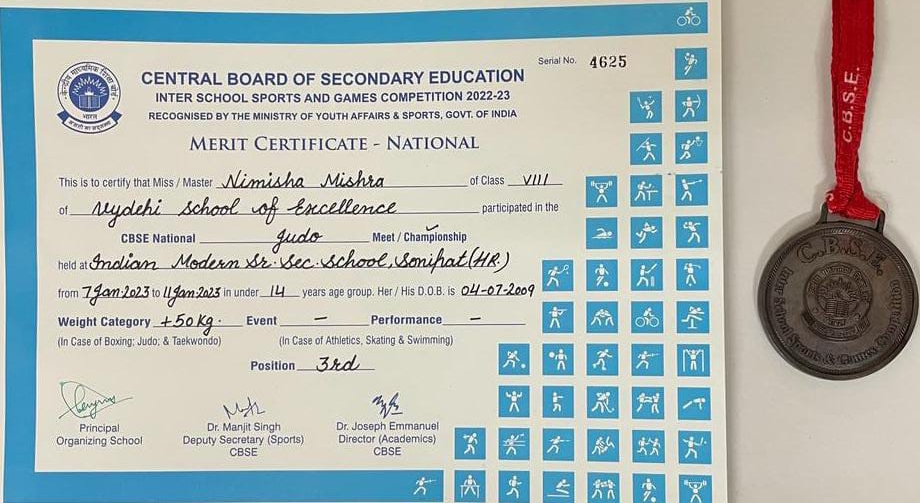 Serial No. 4625
केन्द्रीय माध्यमिक शिक्षा बोर्ड
भारत
CENTRAL BOARD OF SECONDARY EDUCATION
INTER SCHOOL SPORTS AND GAMES COMPETITION 2022-23
RECOGNISED BY THE MINISTRY OF YOUTH AFFAIRS & SPORTS, GOVT. OF INDIA
MERIT CERTIFICATE - NATIONAL
This is to certify that Miss / Master Nimisha Mishra of Class VIII
of Vydehi School of Excellence participated in the
CBSE National Judo Meet / Championship
held at Indian Modern Sr. Sec. School, Sonipat (HR.)
from 7 Jan 2023 to 11 Jan 2023 in under 14 years age group. Her / His D.O.B. is 04-07-2009
Weight Category +50 Kg. Event – Performance –
(In Case of Boxing; Judo; & Taekwondo) (In Case of Athletics, Skating & Swimming)
Position 3rd
Principal
Organizing School
Dr. Manjit Singh
Deputy Secretary (Sports)
CBSE
Dr. Joseph Emmanuel
Director (Academics)
CBSE
C.B.S.E.
C.B.S.E.
Inter School Sports & Games Competition